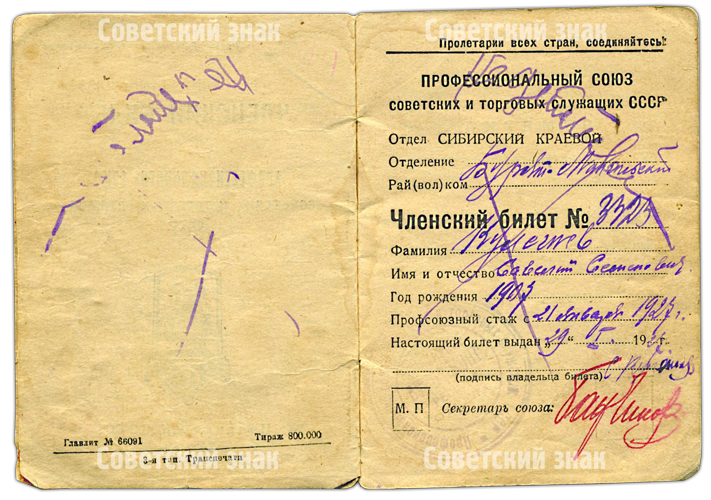 Советский знак
Главлит № 66091 Тираж 800.000
3-я тип. Транспечати
Советский знак
Советский знак
Пролетарии всех стран, соединяйтесь!
ПРОФЕССИОНАЛЬНЫЙ СОЮЗ
советских и торговых служащих СССР
Отдел СИБИРСКИЙ КРАЕВОЙ
Отделение Бурят-Монгольский
Рай(вол)ком
Членский билет № 3323
Фамилия
Имя и отчество Савелий Семенович
Год рождения 1903
Профсоюзный стаж с 21 января 1927 г.
Настоящий билет выдан „29“ I 192 г.
(подпись владельца билета)
М. П Секретарь союза:
Советский знак